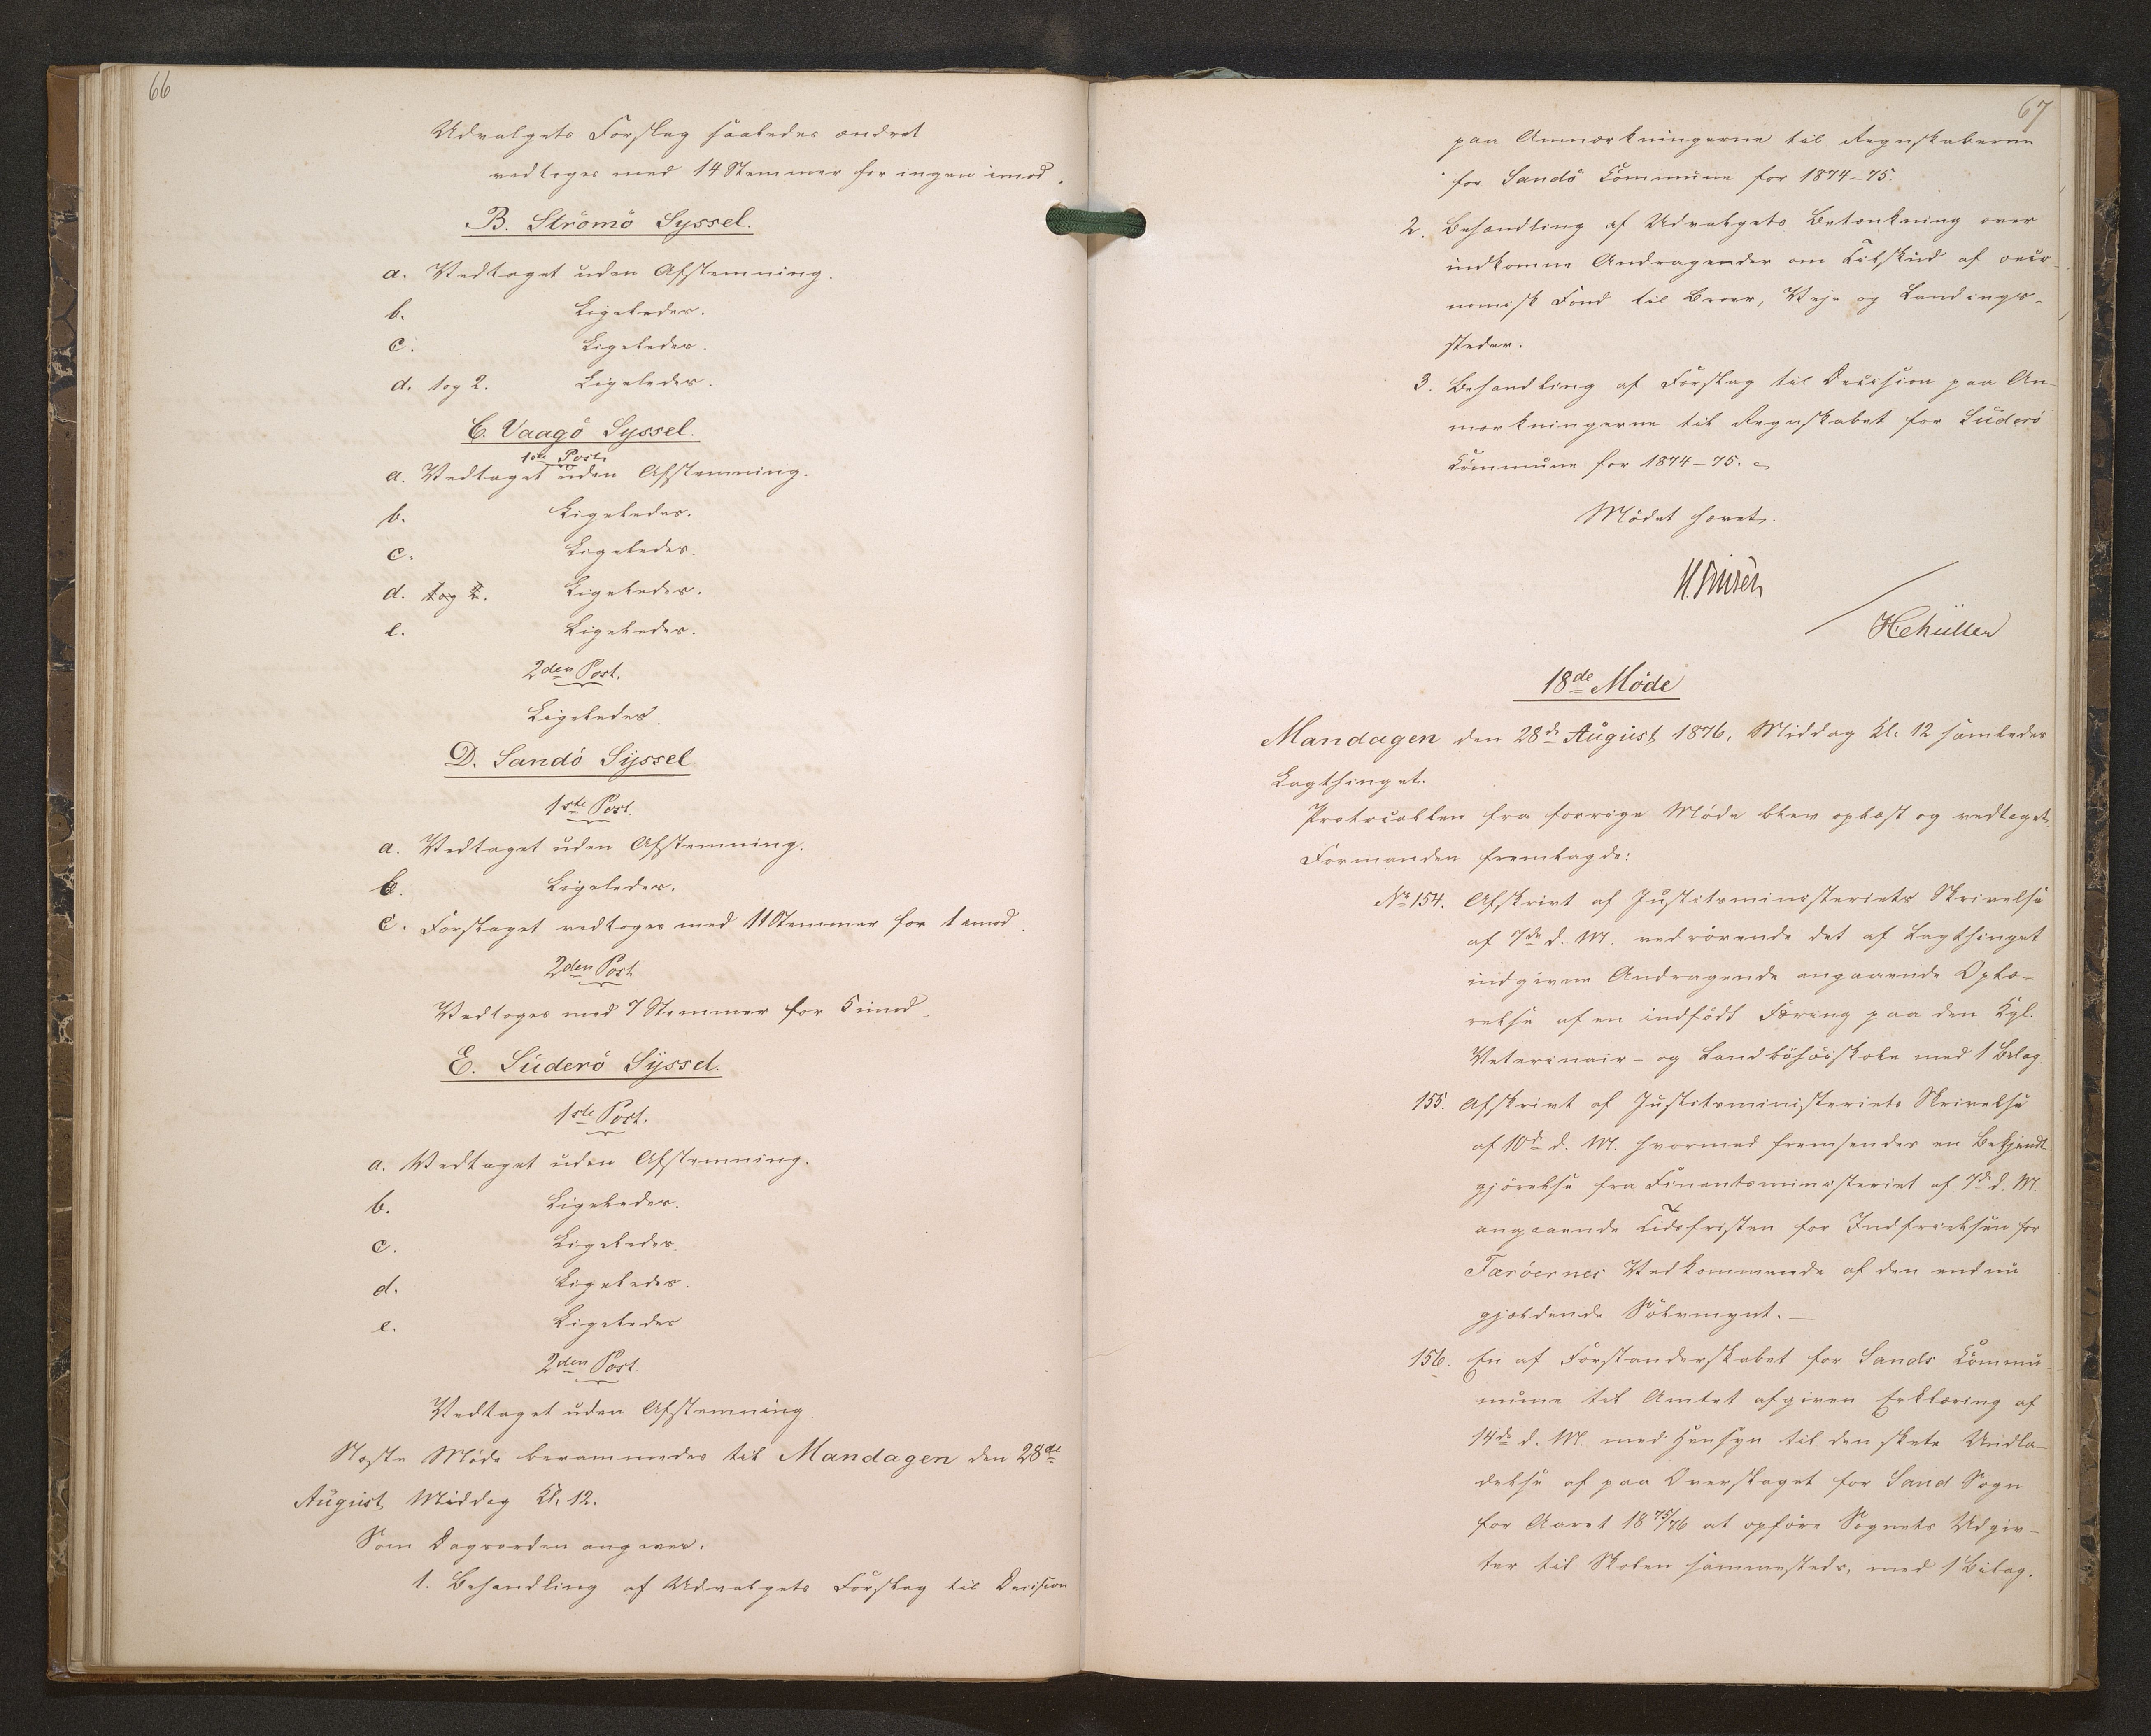 66
Udvalgets Forslag saaledes ændret
vedtoges med 14 Stemmer for ingen imod.
B. Strömö Syssel.
a. Vedtaget uden Afstemning.
b. Ligeledes.
c. Ligeledes.
d. 1 og 2. Ligeledes.
C. Vaagö Syssel.
1ste Post.
a. Vedtaget uden Afstemning.
b. Ligeledes.
c. Ligeledes.
d. 1 og 2. Ligeledes.
e. Ligeledes.
2den Post.
Ligeledes.
D. Sandö Syssel
1ste Post.
a. Vedtaget uden Afstemning.
b. Ligeledes.
c. Forslaget vedtoges med 11 Stemmer for 1 imod.
2den Post
Vedtoges med 7 Stemmer for 5 imod.
E. Suderö Syssel.
1ste Post.
a. Vedtaget uden Afstemning.
b. Ligeledes.
c. Ligeledes.
d. Ligeledes.
e. Ligeledes
2den Post.
Vedtaget uden Afstemning.
Næste Möde berammedes til Mandagen den 28de
August Middag Kl. 12.
Som Dagsorden angaves.
1. Behandling af Udvalgets Forslag til Decision
67
paa Anmærkningerne til Regnskaberne
for Sandö Kommune for 1874-75.
2. Behandling af Udvalgets Betænkning over
indkomne Andragender om Tilskud af oeco-
nomisk Fond til Broer, Veje og Landings-
steder.
3. Behandling af Forslag til Decision paa An-
mærkningerne til Regnskabet for Suderö
Kommune for 1874-75.
Mödet hævet.
H. Finsen
HC Müller
18de Möde
Mandagen den 28d August 1876, Middag Kl. 12 samledes
Lagthinget.
Protocollen fra forrige Möde blev oplæst og vedtaget.
Formanden fremlagde:
No 154. Afskrivt af Justitsministeriets Skrivelse
af 7de d. M. vedrörende det af Lagthinget
indgivne Andragende angaaende Oplæ-
relse af en indfödt Færing paa den Kgl.
Veterinair- og Landbohöiskole med 1 Bilag.
155. Afskrivt af Justitsministeriets Skrivelse
af 10de d. M. hvormed fremsendes en Bekjendt-
gjörelse fra Finantsministeriet af 7d d. M.
angaaende Tidsfristen for Indfrielsen for
Færöernes Vedkommende af den endnu
gjældende Sölvmynt. —
156. En af Forstanderskabet for Sands Kommu-
mune til Amtet afgiven Erklæring af
14de d. M. med Hensyn til den skete Undla-
delse af paa Overslaget for Sand Sogn
for Aaret 1875/76 at opföre Sognets Udgiv-
ter til Skolen sammesteds, med 1 Bilag.